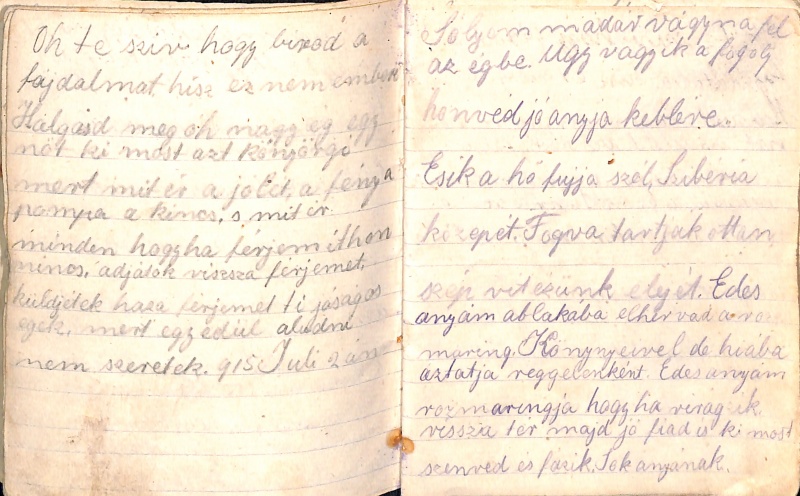 Oh te sziv hogy birod a
fájdalmat hisz ez nem ember
Halgasd meg oh nagy ég egy
nőt ki most azt könyörgo
mert mit ér a föld, a fény a
pompa a kincs, s mit ér
minden hogyha férjem ithon
nincs, adjátok viszsza férjemet,
küldjétek haza férjemet ti jóságos
egek, mert egyedül aludni
nem szeretek. 915 Juli 2 án
Solyom madár vágyna fel
az égbe. Ugy vágyik a fogoly
honvéd jó anyja keblére.
Esik a hó fujja szél, Szibéria
közepét. Fogva tartják ottan
szép vitézünk elejét. Edes
anyám ablakába elhervad a ro
maring. Könnyeivel de hiába
áztatja reggelenként. Edes anyám
rozmaringja hogyha virágzik
vissza tér majd jó fiad is ki most
szenved és fázik. Sok anyának.